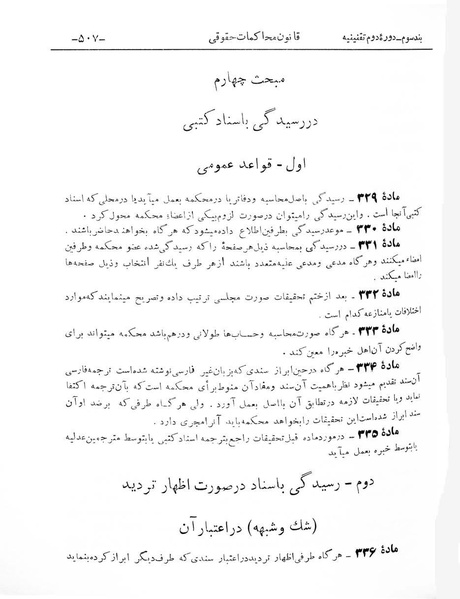 بند سوم ــ دورهٔ دوم تقنینیه
قانون محاکمات حقوقی
-۵۰۷-
مبحث چهارم
در رسیدگی باسناد کتبی
اول - قواعد عمومی
مادهٔ ۳۲۹ - رسیدگی باصل محاسبه و دفاتر یا در محکمه بعمل میآید یا در محلی که اسناد
کتبی آنجا است . و این رسیدگی را میتوان در صورت لزوم بیکی از اعضاء محکمه محول کرد .
مادهٔ ۳۳۰ - موعد رسیدگی بطرفین اطلاع داده میشود که هرگاه بخواهند حاضر باشند .
مادهٔ ۳۳۱ - در رسیدگی بمحاسبه ذیل هر صفحهٔ را که رسیدگی شده عضو محکمه و طرفین
امضاء میکنند و هرگاه مدعی و مدعی علیه متعدد باشند از هر طرف یک نفر انتخاب و ذیل صفحه‌ها
را امضا میکند .
مادهٔ ۳۳۲ - بعد از ختم تحقیقات صورت مجلسی ترتیب داده و تصریح مینمایند که موارد
اختلافات یا منازعه کدام است .
مادهٔ ۳۳۳ - هرگاه صورت محاسبه و حساب‌ها طولانی و درهم باشد محکمه میتواند برای
واضح کردن آن اهل خبره را معین کند .
مادهٔ ۳۳۴ - هرگاه در حین ابراز سندی که بزبان غیر فارسی نوشته شده است ترجمه فارسی
آن سند تقدیم میشود نظر باهمیت آن سند و مفاد آن منوط برأی محکمه است که بآن ترجمه اکتفا
نماید و یا تحقیقات لازمه در تطابق آن با اصل بعمل آورد . ولی هرگاه طرفی که بر ضد او آن
سند ابراز شده است این تحقیقات را بخواهد محکمه باید آنرا مجری دارد .
مادهٔ ۳۳۵ - در مورد ماده قبل تحقیقات راجع بترجمه اسناد کتبی یا بتوسط مترجمین عدلیه
یا بتوسط خبره بعمل میآید
دوم - رسیدگی باسناد در صورت اظهار تردید
(شك و شبهه) در اعتبار آن
مادهٔ ۳۳۶ - هرگاه طرفی اظهار تردید در اعتبار سندی که طرف دیگر ابراز کرده بنماید